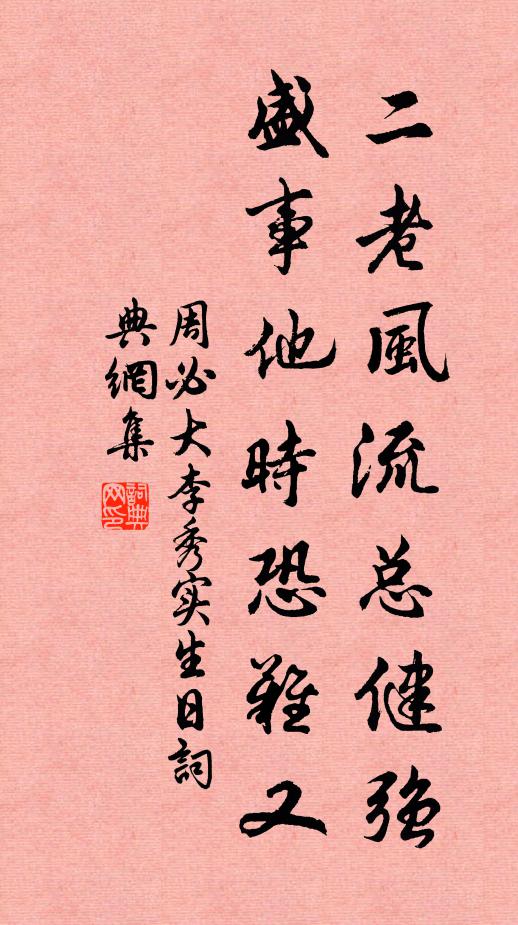 二老風流总健強
盛事他時恐難又
周必大李秀实生日詞
典網集
詞典网印